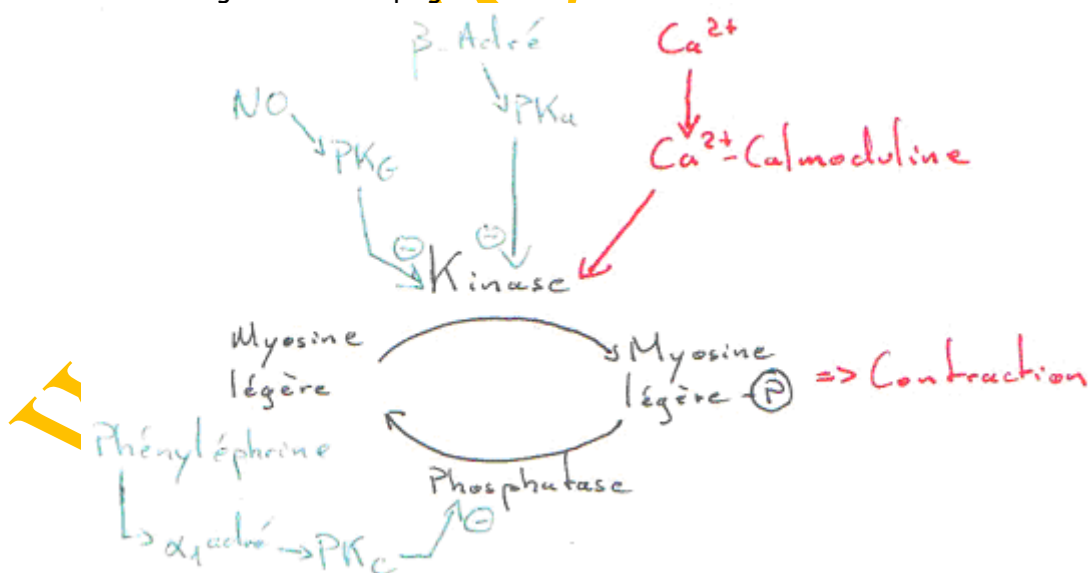 β-Adré
Ca²⁺
NO
PKa
PKG
Ca²⁺-Calmoduline
⊖
⊖
Kinase
Myosine
légère
Myosine
légère-Ⓟ
=> Contraction
Phényléphrine
Phosphatase
⊖
α₁ adré
PKc